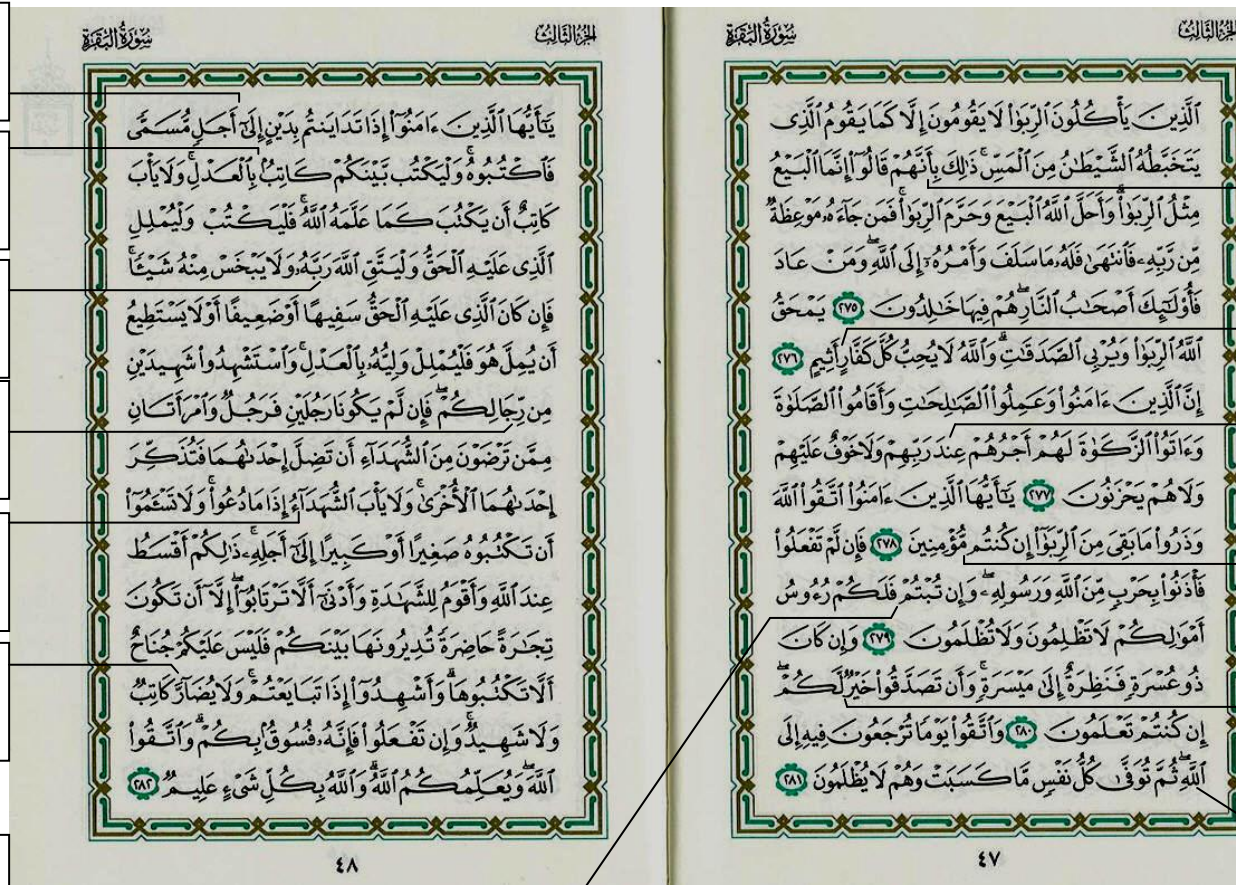 الجزء الثالث
سورة البقرة
ٱلَّذِينَ يَأْكُلُونَ ٱلرِّبَوٰا۟ لَا يَقُومُونَ إِلَّا كَمَا يَقُومُ ٱلَّذِى
يَتَخَبَّطُهُ ٱلشَّيْطَٰنُ مِنَ ٱلْمَسِّ ۚ ذَٰلِكَ بِأَنَّهُمْ قَالُوٓا۟ إِنَّمَا ٱلْبَيْعُ
مِثْلُ ٱلرِّبَوٰا۟ ۗ وَأَحَلَّ ٱللَّهُ ٱلْبَيْعَ وَحَرَّمَ ٱلرِّبَوٰا۟ ۚ فَمَن جَآءَهُۥ مَوْعِظَةٌ
مِّن رَّبِّهِۦ فَٱنتَهَىٰ فَلَهُۥ مَا سَلَفَ وَأَمْرُهُۥٓ إِلَى ٱللَّهِ ۖ وَمَنْ عَادَ
فَأُو۟لَٰٓئِكَ أَصْحَٰبُ ٱلنَّارِ ۖ هُمْ فِيهَا خَٰلِدُونَ ٢٧٥ يَمْحَقُ
ٱللَّهُ ٱلرِّبَوٰا۟ وَيُرْبِى ٱلصَّدَقَٰتِ ۗ وَٱللَّهُ لَا يُحِبُّ كُلَّ كَفَّارٍ أَثِيمٍ ٢٧٦
إِنَّ ٱلَّذِينَ ءَامَنُوا۟ وَعَمِلُوا۟ ٱلصَّٰلِحَٰتِ وَأَقَامُوا۟ ٱلصَّلَوٰةَ
وَءَاتَوُا۟ ٱلزَّكَوٰةَ لَهُمْ أَجْرُهُمْ عِندَ رَبِّهِمْ وَلَا خَوْفٌ عَلَيْهِمْ
وَلَا هُمْ يَحْزَنُونَ ٢٧٧ يَٰٓأَيُّهَا ٱلَّذِينَ ءَامَنُوا۟ ٱتَّقُوا۟ ٱللَّهَ
وَذَرُوا۟ مَا بَقِىَ مِنَ ٱلرِّبَوٰٓا۟ إِن كُنتُم مُّؤْمِنِينَ ٢٧٨ فَإِن لَّمْ تَفْعَلُوا۟
فَأْذَنُوا۟ بِحَرْبٍ مِّنَ ٱللَّهِ وَرَسُولِهِۦ ۖ وَإِن تُبْتُمْ فَلَكُمْ رُءُوسُ
أَمْوَٰلِكُمْ لَا تَظْلِمُونَ وَلَا تُظْلَمُونَ ٢٧٩ وَإِن كَانَ
ذُو عُسْرَةٍ فَنَظِرَةٌ إِلَىٰ مَيْسَرَةٍ ۚ وَأَن تَصَدَّقُوا۟ خَيْرٌ لَّكُمْ ۖ
إِن كُنتُمْ تَعْلَمُونَ ٢٨٠ وَٱتَّقُوا۟ يَوْمًا تُرْجَعُونَ فِيهِ إِلَى
ٱللَّهِ ۖ ثُمَّ تُوَفَّىٰ كُلُّ نَفْسٍ مَّا كَسَبَتْ وَهُمْ لَا يُظْلَمُونَ ٢٨١
٤٧
الجزء الثالث
سورة البقرة
يَٰٓأَيُّهَا ٱلَّذِينَ ءَامَنُوٓا۟ إِذَا تَدَايَنتُم بِدَيْنٍ إِلَىٰٓ أَجَلٍ مُّسَمًّى
فَٱكْتُبُوهُ ۚ وَلْيَكْتُب بَّيْنَكُمْ كَاتِبٌۢ بِٱلْعَدْلِ ۚ وَلَا يَأْبَ
كَاتِبٌ أَن يَكْتُبَ كَمَا عَلَّمَهُ ٱللَّهُ ۚ فَلْيَكْتُبْ وَلْيُمْلِلِ
ٱلَّذِى عَلَيْهِ ٱلْحَقُّ وَلْيَتَّقِ ٱللَّهَ رَبَّهُۥ وَلَا يَبْخَسْ مِنْهُ شَيْـًٔا ۚ
فَإِن كَانَ ٱلَّذِى عَلَيْهِ ٱلْحَقُّ سَفِيهًا أَوْ ضَعِيفًا أَوْ لَا يَسْتَطِيعُ
أَن يُمِلَّ هُوَ فَلْيُمْلِلْ وَلِيُّهُۥ بِٱلْعَدْلِ ۚ وَٱسْتَشْهِدُوا۟ شَهِيدَيْنِ
مِن رِّجَالِكُمْ ۖ فَإِن لَّمْ يَكُونَا رَجُلَيْنِ فَرَجُلٌ وَٱمْرَأَتَانِ
مِمَّن تَرْضَوْنَ مِنَ ٱلشُّهَدَآءِ أَن تَضِلَّ إِحْدَىٰهُمَا فَتُذَكِّرَ
إِحْدَىٰهُمَا ٱلْأُخْرَىٰ ۚ وَلَا يَأْبَ ٱلشُّهَدَآءُ إِذَا مَا دُعُوا۟ ۚ وَلَا تَسْـَٔمُوٓا۟
أَن تَكْتُبُوهُ صَغِيرًا أَوْ كَبِيرًا إِلَىٰٓ أَجَلِهِۦ ۚ ذَٰلِكُمْ أَقْسَطُ
عِندَ ٱللَّهِ وَأَقْوَمُ لِلشَّهَٰدَةِ وَأَدْنَىٰٓ أَلَّا تَرْتَابُوٓا۟ ۖ إِلَّآ أَن تَكُونَ
تِجَٰرَةً حَاضِرَةً تُدِيرُونَهَا بَيْنَكُمْ فَلَيْسَ عَلَيْكُمْ جُنَاحٌ
أَلَّا تَكْتُبُوهَا ۗ وَأَشْهِدُوٓا۟ إِذَا تَبَايَعْتُمْ ۚ وَلَا يُضَآرَّ كَاتِبٌ
وَلَا شَهِيدٌ ۚ وَإِن تَفْعَلُوا۟ فَإِنَّهُۥ فُسُوقٌۢ بِكُمْ ۗ وَٱتَّقُوا۟
ٱللَّهَ ۖ وَيُعَلِّمُكُمُ ٱللَّهُ ۗ وَٱللَّهُ بِكُلِّ شَىْءٍ عَلِيمٌ ٢٨٢
٤٨